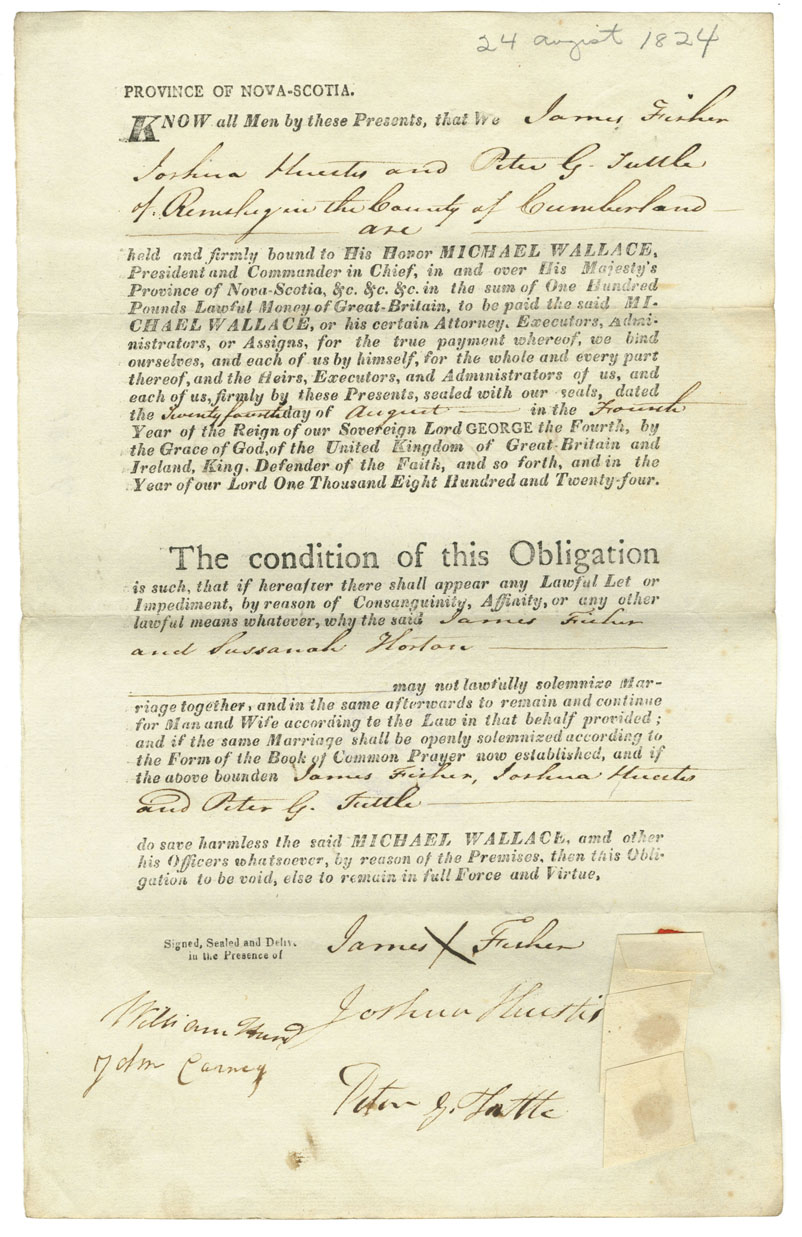 24 August 1824
PROVINCE OF NOVA-SCOTIA.
KNOW all Men by these Presents, that We James Fisher
Joshua Huestis and Peter G. Tuttle
of Remsheg in the County of Cumberland
are
held and firmly bound to His Honor MICHAEL WALLACE,
President and Commander in Chief, in and over His Majesty's
Province of Nova-Scotia, &c. &c. &c. in the sum of One Hundred
Pounds Lawful Money of Great-Britain, to be paid the said MI-
CHAEL WALLACE, or his certain Attorney, Executors, Admi-
nistrators, or Assigns, for the true payment whereof, we bind
ourselves, and each of us by himself, for the whole and every part
thereof, and the Heirs, Executors, and Administrators of us, and
each of us, firmly by these Presents, sealed with our seals, dated
the Twenty fourth day of August in the Fourth
Year of the Reign of our Sovereign Lord GEORGE the Fourth, by
the Grace of God, of the United Kingdom of Great-Britain and
Ireland, King, Defender of the Faith, and so forth, and in the
Year of our Lord One Thousand Eight Hundred and Twenty-four.
The condition of this Obligation
is such, that if hereafter there shall appear any Lawful Let or
Impediment, by reason of Consanguinity, Affinity, or any other
lawful means whatever, why the said James Fisher
and Sussanah Horton
may not lawfully solemnize Mar-
riage together, and in the same afterwards to remain and continue
for Man and Wife according to the Law in that behalf provided;
and if the same Marriage shall be openly solemnized according to
the Form of the Book of Common Prayer now established, and if
the above bounden James Fisher, Joshua Huestis
and Peter G. Tuttle
do save harmless the said MICHAEL WALLACE, amd other
his Officers whatsoever, by reason of the Premises, then this Obli-
gation to be void, else to remain in full Force and Virtue.
Signed, Sealed and Deliv.
in the Presence of
James X Fisher
Joshua Huestis
William
Carney
Peter G. Tuttle